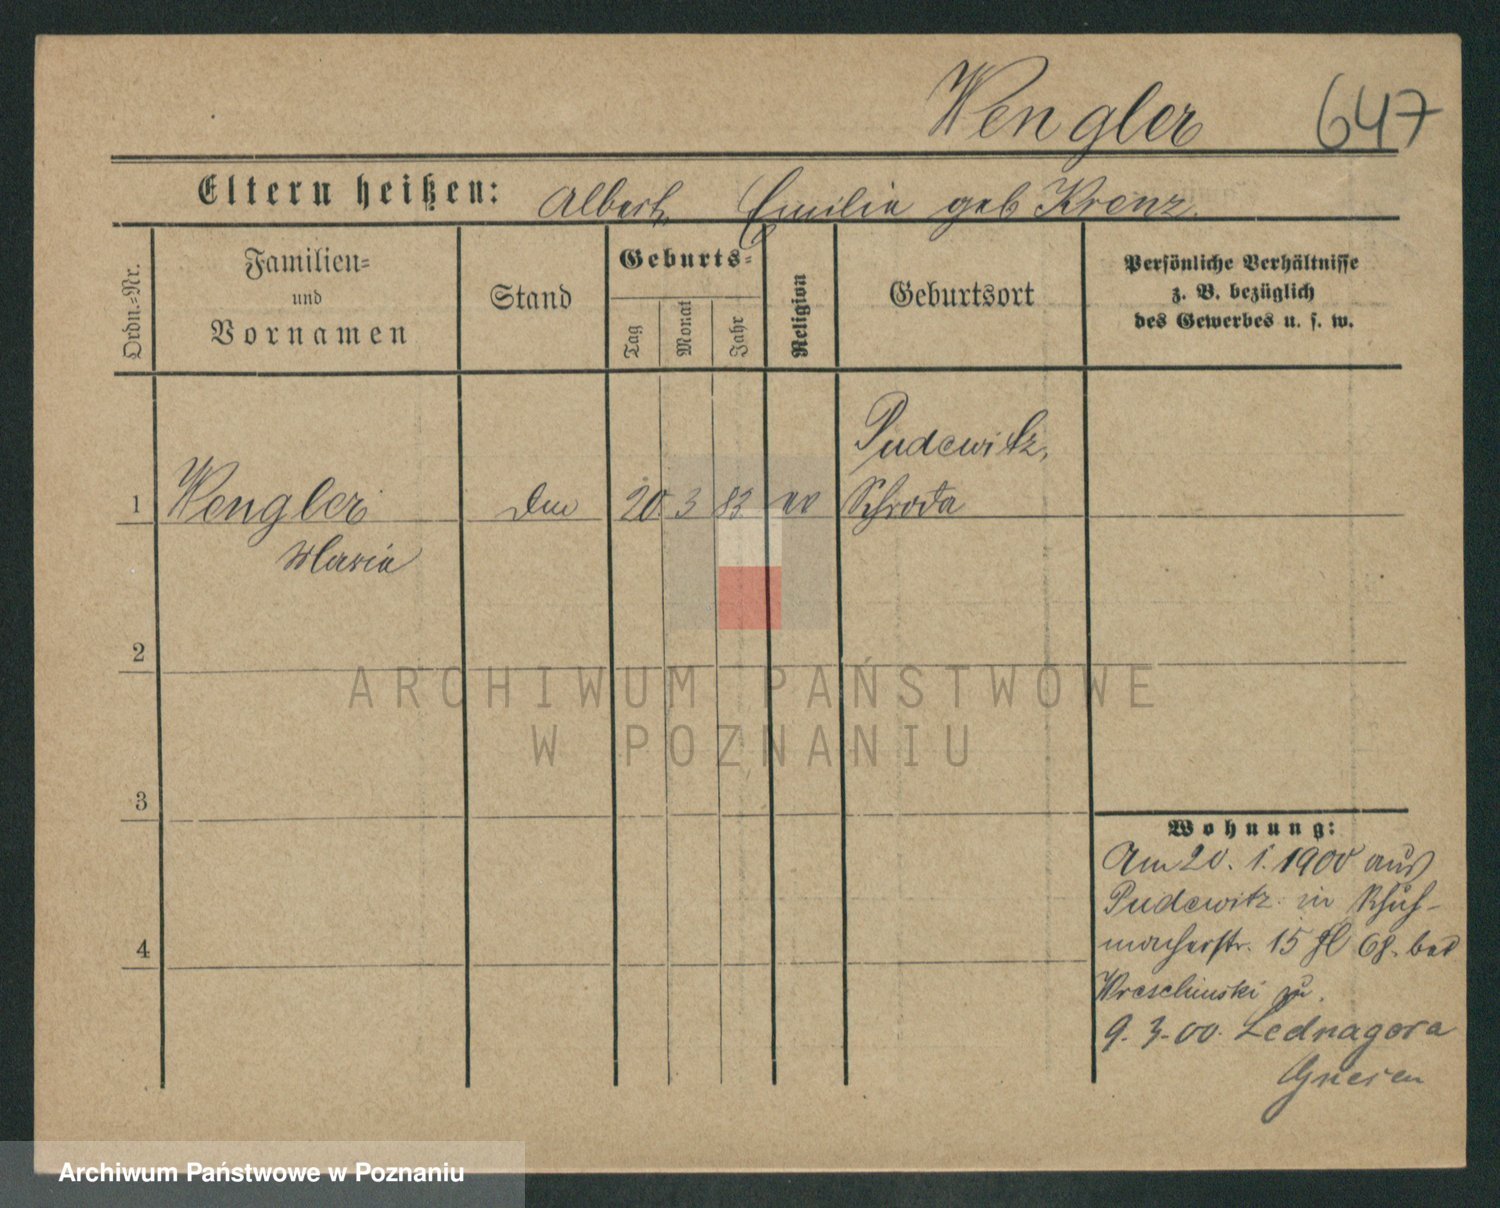 Wengler 647
Eltern heißen: Albert Emilie geb Krenz.
Ordn.-Nr.
Familien-
und
Vornamen
Stand
Geburts-
Tag
Monat
Jahr
Religion
Geburtsort
Persönliche Verhältnisse
z. B. bezüglich
des Gewerbes u. s. w.
Pudewitz,
1 Wengler 20. 3 83 ev Schroda
Maria
2
ARCHIWUM PAŃSTWOWE
W POZNANIU
3
Wohnung:
Am 20. 1. 1900 aus
Pudewitz in Schuh-
4
macherstr. 15 bei
Wreschinski
9. 3. 00. Lednagora
Gnesen
Archiwum Państwowe w Poznaniu